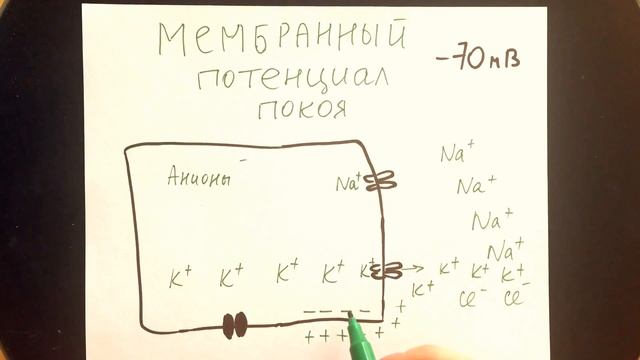 МЕМБРАННЫЙ
ПОТЕНЦИАЛ
ПОКОЯ
-70 мВ
Анионы⁻
Na⁺
Na⁺
Na⁺
Na⁺
Na⁺
K⁺ K⁺ K⁺ K⁺ K⁺ → K⁺ K⁺ K⁺
K⁺ Cl⁻ Cl⁻
− − − − +
+ + + + + +